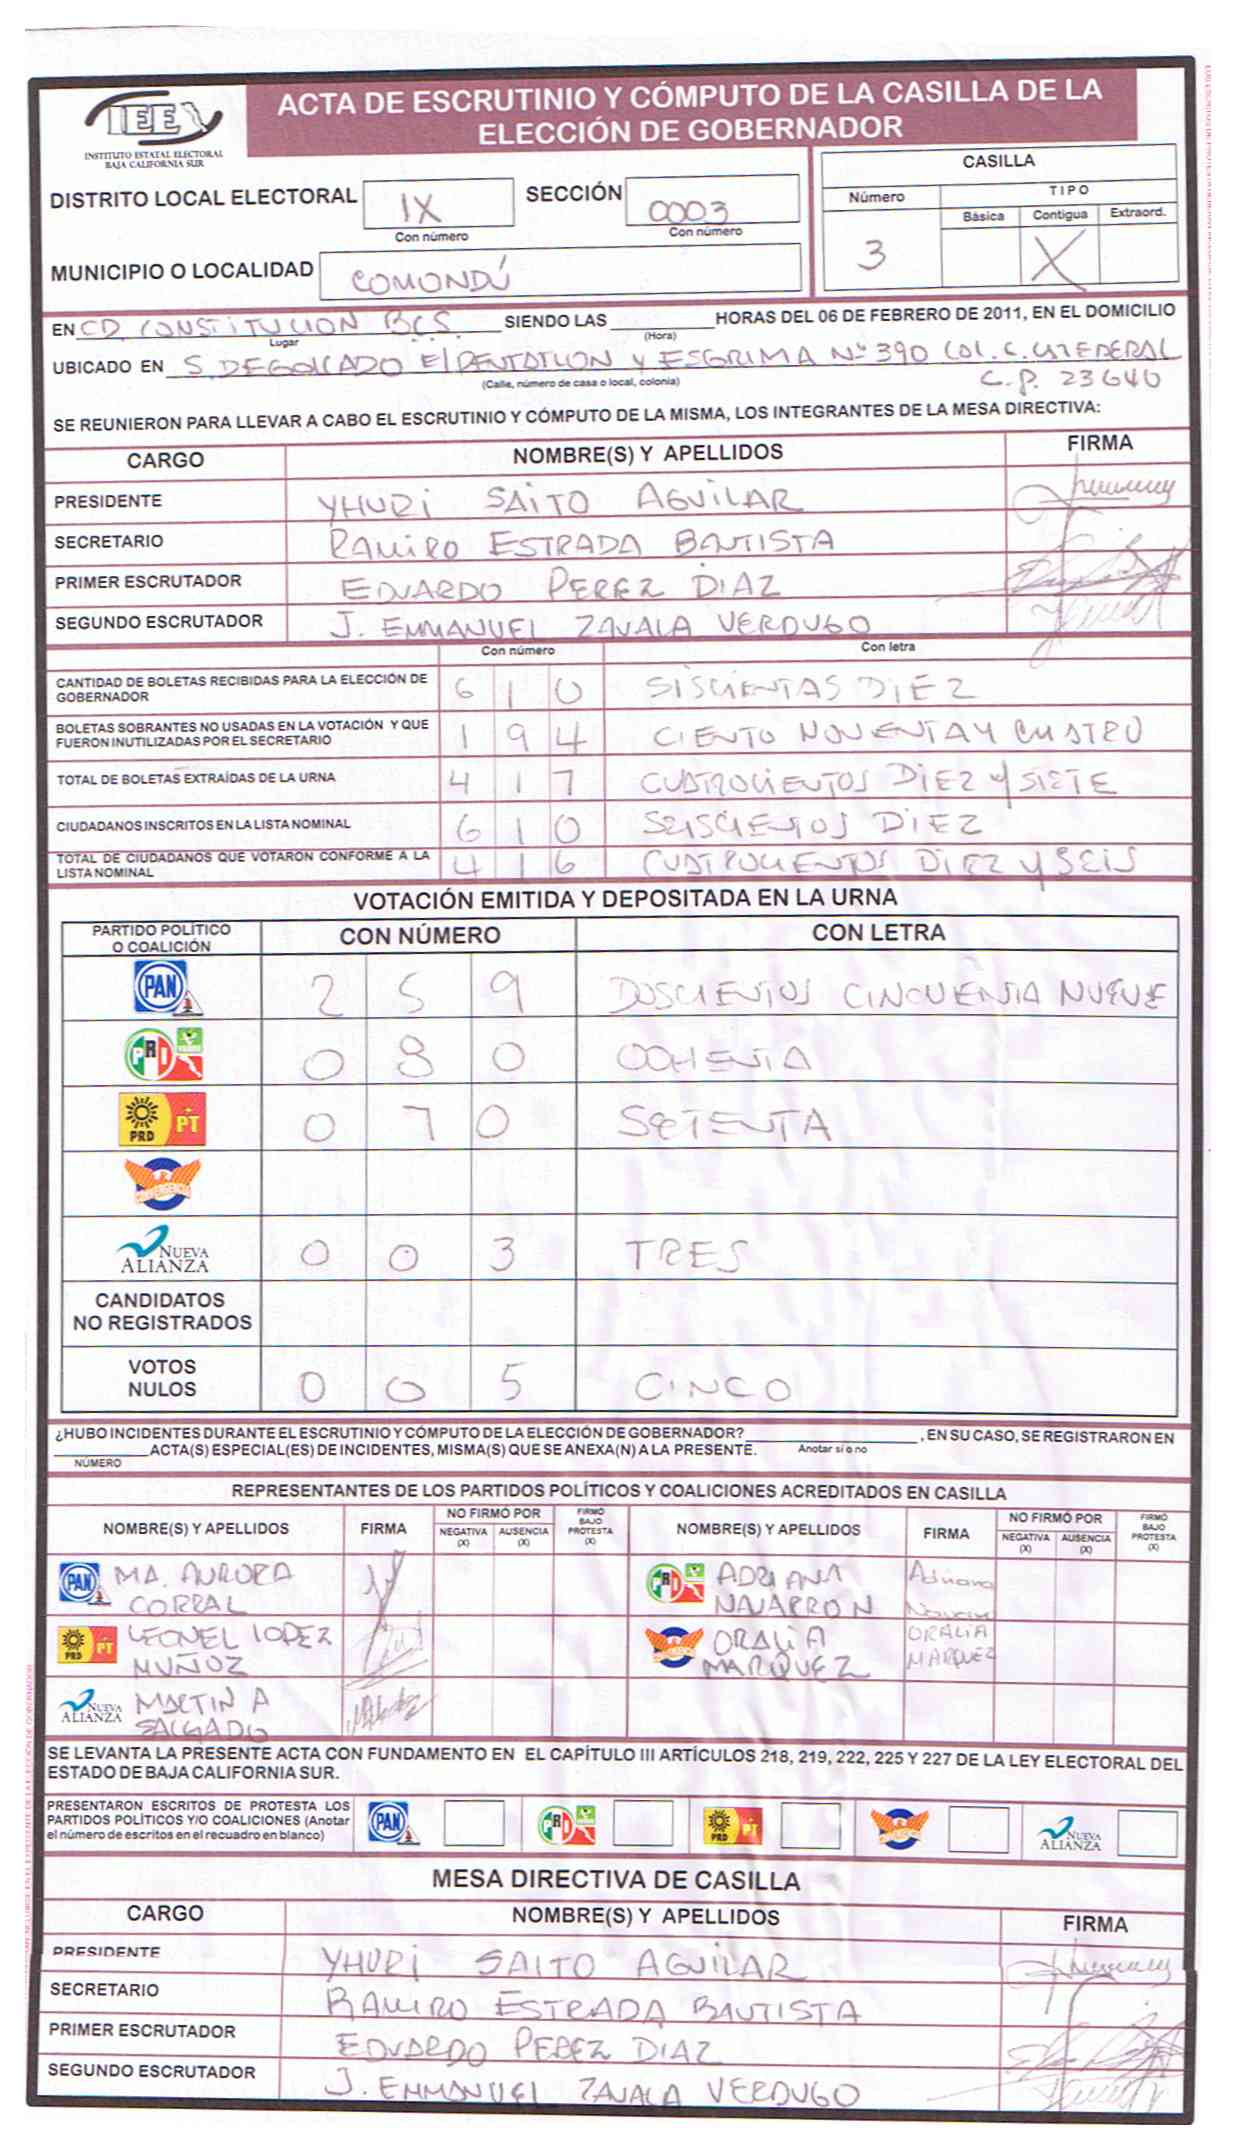 IEE
INSTITUTO ESTATAL ELECTORAL
BAJA CALIFORNIA SUR
ACTA DE ESCRUTINIO Y CÓMPUTO DE LA CASILLA DE LA
ELECCIÓN DE GOBERNADOR
DISTRITO LOCAL ELECTORAL IX SECCIÓN 0003
Con número Con número
CASILLA
Número TIPO
Básica Contigua Extraord.
3 X
MUNICIPIO O LOCALIDAD COMONDÚ
EN CD. CONSTITUCION BCS. SIENDO LAS HORAS DEL 06 DE FEBRERO DE 2011, EN EL DOMICILIO
Lugar (Hora)
UBICADO EN S. DEGOLLADO E/PENTATLON Y ESGRIMA Nº 390 COL. C.
(Calle, número de casa o local, colonia) C.P. 23640
SE REUNIERON PARA LLEVAR A CABO EL ESCRUTINIO Y CÓMPUTO DE LA MISMA, LOS INTEGRANTES DE LA MESA DIRECTIVA:
CARGO NOMBRE(S) Y APELLIDOS FIRMA
PRESIDENTE YHURI SAITO AGUILAR
SECRETARIO RAMIRO ESTRADA BAUTISTA
PRIMER ESCRUTADOR EDUARDO PEREZ DIAZ
SEGUNDO ESCRUTADOR J. EMMANUEL ZAVALA VERDUGO
Con número Con letra
CANTIDAD DE BOLETAS RECIBIDAS PARA LA ELECCIÓN DE
GOBERNADOR 6 1 0 SISCIENTAS DIEZ
BOLETAS SOBRANTES NO USADAS EN LA VOTACIÓN Y QUE
FUERON INUTILIZADAS POR EL SECRETARIO 1 9 4 CIENTO NOVENTA Y CUATRO
TOTAL DE BOLETAS EXTRAÍDAS DE LA URNA 4 1 7 CUATROCIENTOS DIEZ Y SIETE
CIUDADANOS INSCRITOS EN LA LISTA NOMINAL 6 1 0 SEISCIENTOS DIEZ
TOTAL DE CIUDADANOS QUE VOTARON CONFORME A LA
LISTA NOMINAL 4 1 6 CUATROCIENTOS DIEZ Y SEIS
VOTACIÓN EMITIDA Y DEPOSITADA EN LA URNA
PARTIDO POLÍTICO
O COALICIÓN CON NÚMERO CON LETRA
PAN 2 5 9 DOSCIENTOS CINCUENTA NUEVE
PRI 0 8 0 OCHENTA
PRD PT 0 7 0 SETENTA
CONVERGENCIA
NUEVA
ALIANZA 0 0 3 TRES
CANDIDATOS
NO REGISTRADOS
VOTOS
NULOS 0 0 5 CINCO
¿HUBO INCIDENTES DURANTE EL ESCRUTINIO Y CÓMPUTO DE LA ELECCIÓN DE GOBERNADOR? , EN SU CASO, SE REGISTRARON EN
ACTA(S) ESPECIAL(ES) DE INCIDENTES, MISMA(S) QUE SE ANEXA(N) A LA PRESENTE. Anotar si o no
NÚMERO
REPRESENTANTES DE LOS PARTIDOS POLÍTICOS Y COALICIONES ACREDITADOS EN CASILLA
NOMBRE(S) Y APELLIDOS FIRMA NO FIRMÓ POR NEGATIVA (X) AUSENCIA (X) FIRMÓ BAJO PROTESTA (X) NOMBRE(S) Y APELLIDOS FIRMA NO FIRMÓ POR NEGATIVA (X) AUSENCIA (X) FIRMÓ BAJO PROTESTA (X)
PAN MA. AURORA PRI ADRIANA Adriana
CORRAL NAVARRON
PRD PT LEONEL LOPEZ ORALIA ORALIA
MUÑOZ MARQUEZ MARQUEZ
NUEVA ALIANZA MARTIN A
SALGADO
SE LEVANTA LA PRESENTE ACTA CON FUNDAMENTO EN EL CAPÍTULO III ARTÍCULOS 218, 219, 222, 225 Y 227 DE LA LEY ELECTORAL DEL
ESTADO DE BAJA CALIFORNIA SUR.
PRESENTARON ESCRITOS DE PROTESTA LOS
PARTIDOS POLÍTICOS Y/O COALICIONES (Anotar
el número de escritos en el recuadro en blanco) PAN PRI PRD PT NUEVA ALIANZA
MESA DIRECTIVA DE CASILLA
CARGO NOMBRE(S) Y APELLIDOS FIRMA
PRESIDENTE YHURI SAITO AGUILAR
SECRETARIO RAMIRO ESTRADA BAUTISTA
PRIMER ESCRUTADOR EDUARDO PEREZ DIAZ
SEGUNDO ESCRUTADOR J. EMMANUEL ZAVALA VERDUGO